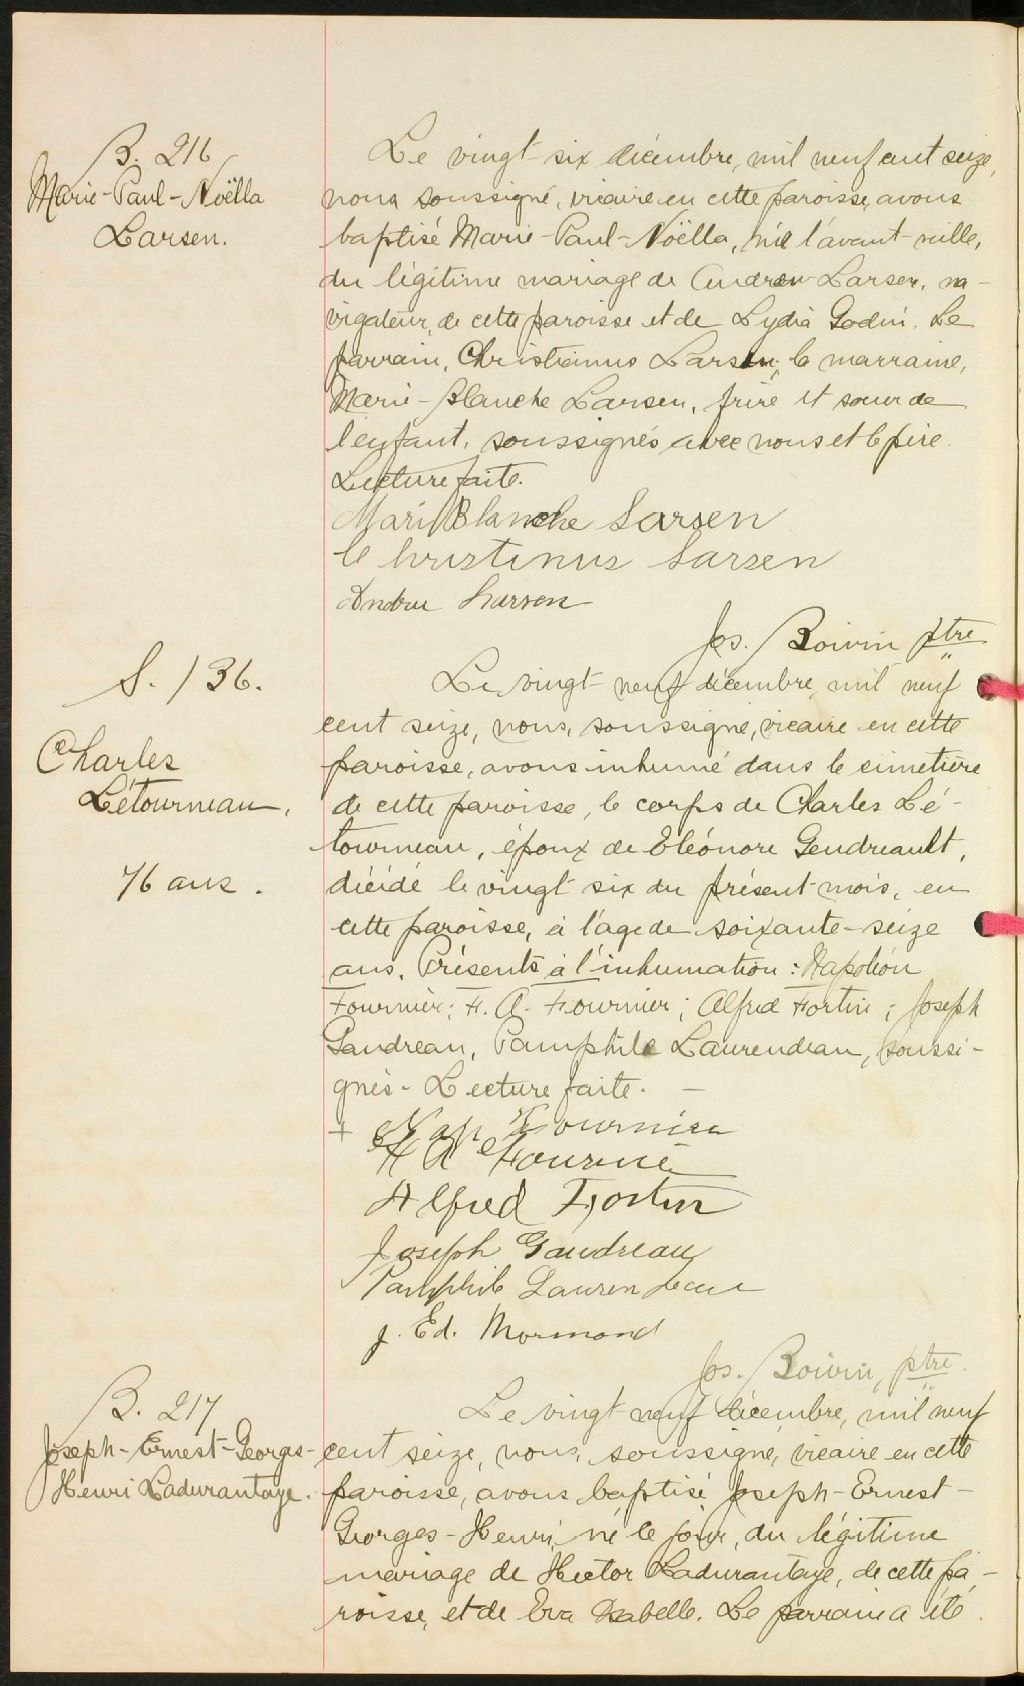 B. 216
Marie-Paul-Noëlla
Larsen.
Le vingt-six décembre, mil neuf cent seize,
nous soussigné, vicaire en cette paroisse, avons
baptisé Marie-Paul-Noëlla, née l'avant-veille,
du légitime mariage de Andrew Larsen, na-
vigateur, de cette paroisse et de Lydia Godin. Le
parrain, Christianus Larsen, la marraine,
Marie-Blanche Larsen, frère et soeur de
l'enfant, soussignés avec nous et le père.
Lecture faite.
Mari Blanche Larsen
Christinus Larsen
Andru Larsen
Jos. Boivin ptre
S. 136.
Charles
Létourneau,
76 ans.
Le vingt-neuf décembre, mil neuf
cent seize, nous, soussigné, vicaire en cette
paroisse, avons inhumé dans le cimetière
de cette paroisse, le corps de Charles Lé-
tourneau, époux de Eléonore Gendreault,
décédé le vingt-six du présent mois, en
cette paroisse, à l'age de soixante-seize
ans. Présents à l'inhumation: Napoléon
Fournier; F. A. Fournier; Alfred Fortin; Joseph
Gaudreau, Pamphile Laurendeau, soussi-
gnés. Lecture faite. —
+ Nap Fournier
A Fournie
Alfred Fortin
Joseph Gaudreau
Pamphile Laurendeau
J. Ed. Normand
Jos. Boivin, ptre.
B. 217
Joseph-Ernest-Georges-
Henri Ladurantaye.
Le vingt-neuf décembre, mil neuf
cent seize, nous, soussigné, vicaire en cette
paroisse, avons baptisé Joseph-Ernest-
Georges-Henri, né ce jour, du légitime
mariage de Hector Ladurantaye, de cette pa-
roisse, et de Eva Isabelle. Le parrain a été